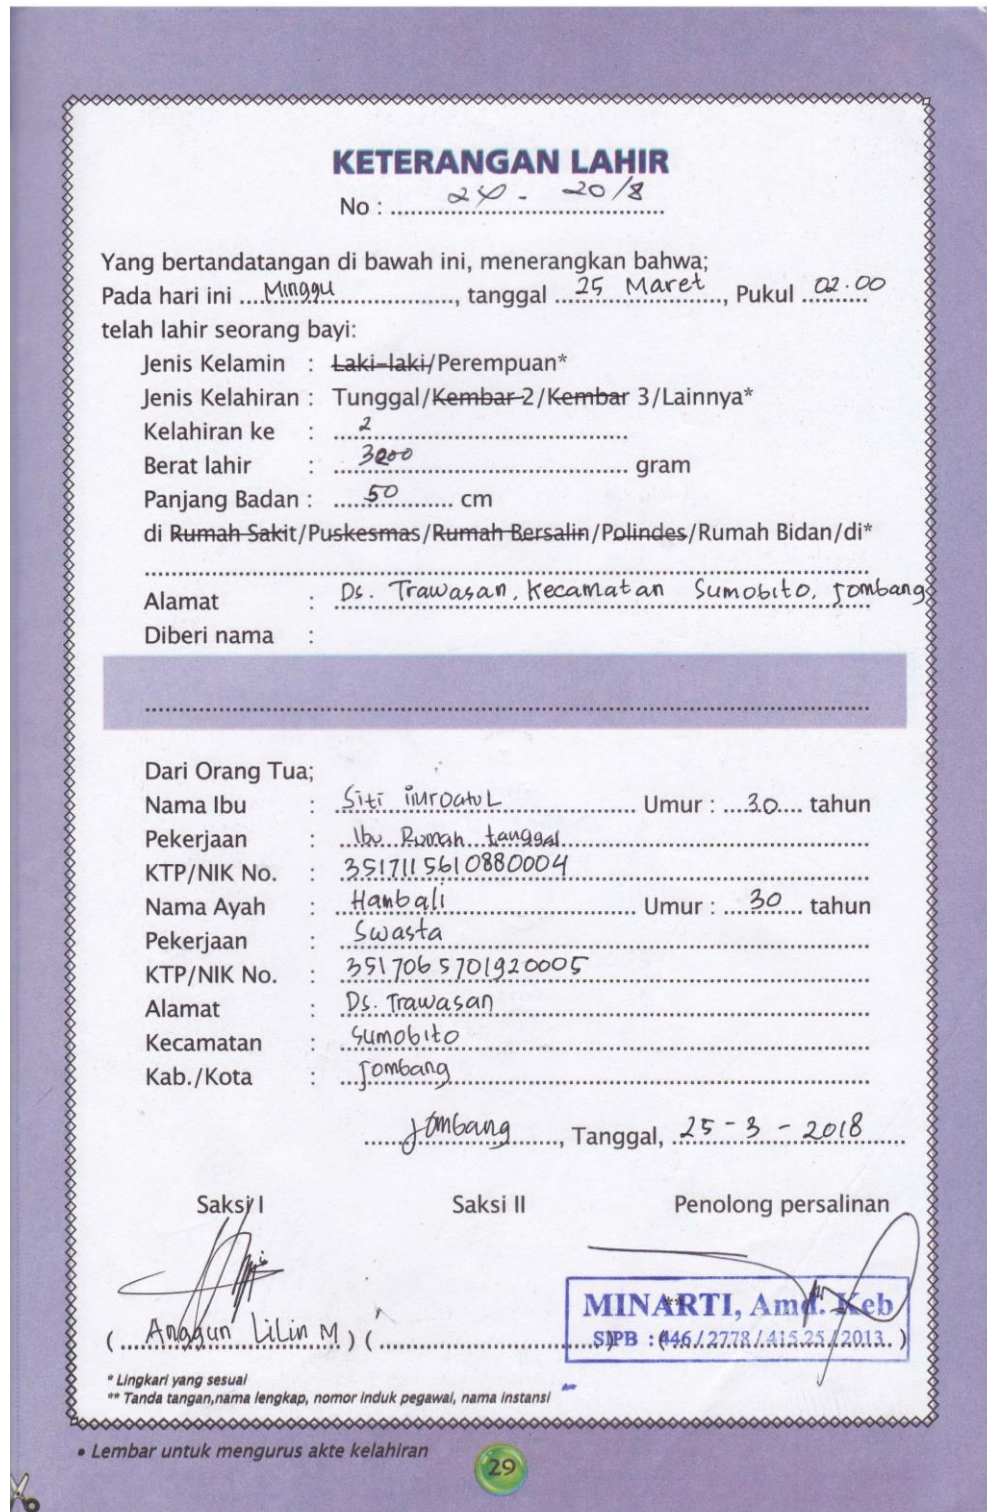 KETERANGAN LAHIR
No : 24 - 20/8
Yang bertandatangan di bawah ini, menerangkan bahwa;
Pada hari ini Minggu, tanggal 25 Maret, Pukul 02.00
telah lahir seorang bayi:
Jenis Kelamin : Laki-laki/Perempuan*
Jenis Kelahiran : Tunggal/Kembar 2/Kembar 3/Lainnya*
Kelahiran ke : 2
Berat lahir : gram
Panjang Badan : 50 cm
di Rumah Sakit/Puskesmas/Rumah Bersalin/Polindes/Rumah Bidan/di*
Alamat : Ds. Trawasan, Kecamatan Sumobito, Jombang
Diberi nama :
Dari Orang Tua;
Nama Ibu : Siti Umur : 30 tahun
Pekerjaan : Ibu Rumah tanggal
KTP/NIK No. : 3517115610880004
Nama Ayah : Hambali Umur : 30 tahun
Pekerjaan : Swasta
KTP/NIK No. : 3517065701920005
Alamat : Ds. Trawasan
Kecamatan : Sumobito
Kab./Kota : Jombang
Jombang, Tanggal, 25-3-2018
Saksi I Saksi II Penolong persalinan
MINARTI, Amd. Keb
(Anggun Lilin M) ( ) SIPB : 446/2778/415.25/2013
* Lingkari yang sesuai
** Tanda tangan,nama lengkap, nomor induk pegawai, nama instansi
• Lembar untuk mengurus akte kelahiran
29